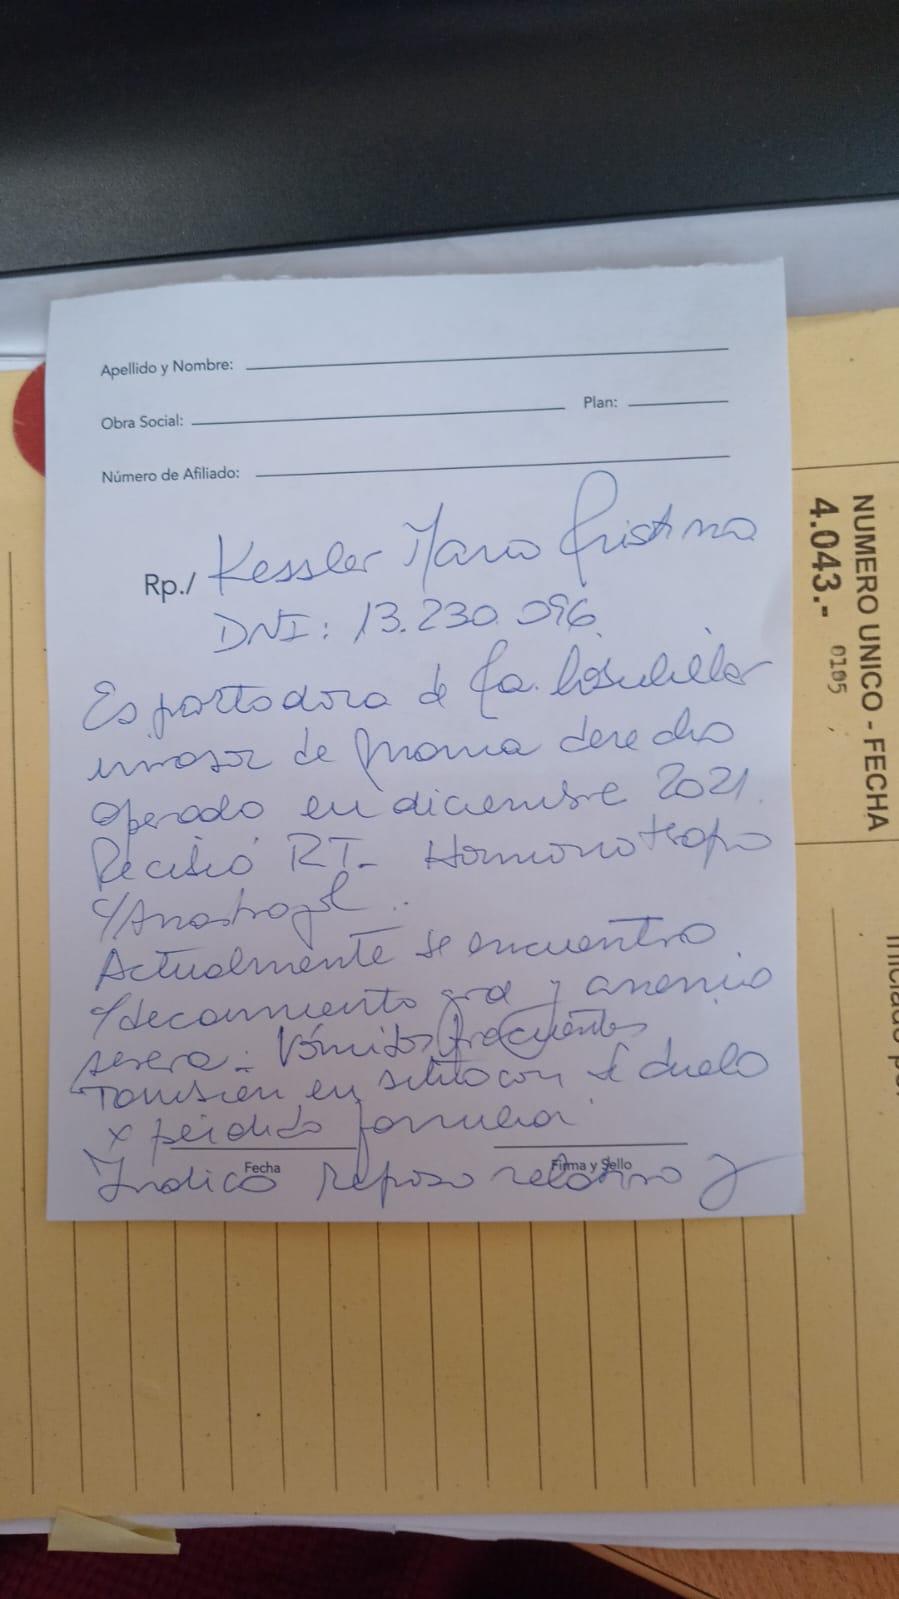 Apellido y Nombre:
Obra Social: Plan:
Número de Afiliado:
Rp./ Kessler Maria Cristina
DNI: 13.230.096
Es portadora de Ca. lobulillar
invasor de mama derecha
operado en diciembre 2021.
Recibió RT- Hormonoterapia
c/Anastrozol.
Actualmente se encuentra
c/decaimiento gral y anemia
severa. Vómitos frecuentes
Tambien en situacion de duelo
x perdida familiar.
Fecha Firma y Sello
Indico Reposo relativo y
NUMERO UNICO - FECHA
4.043.- 0195